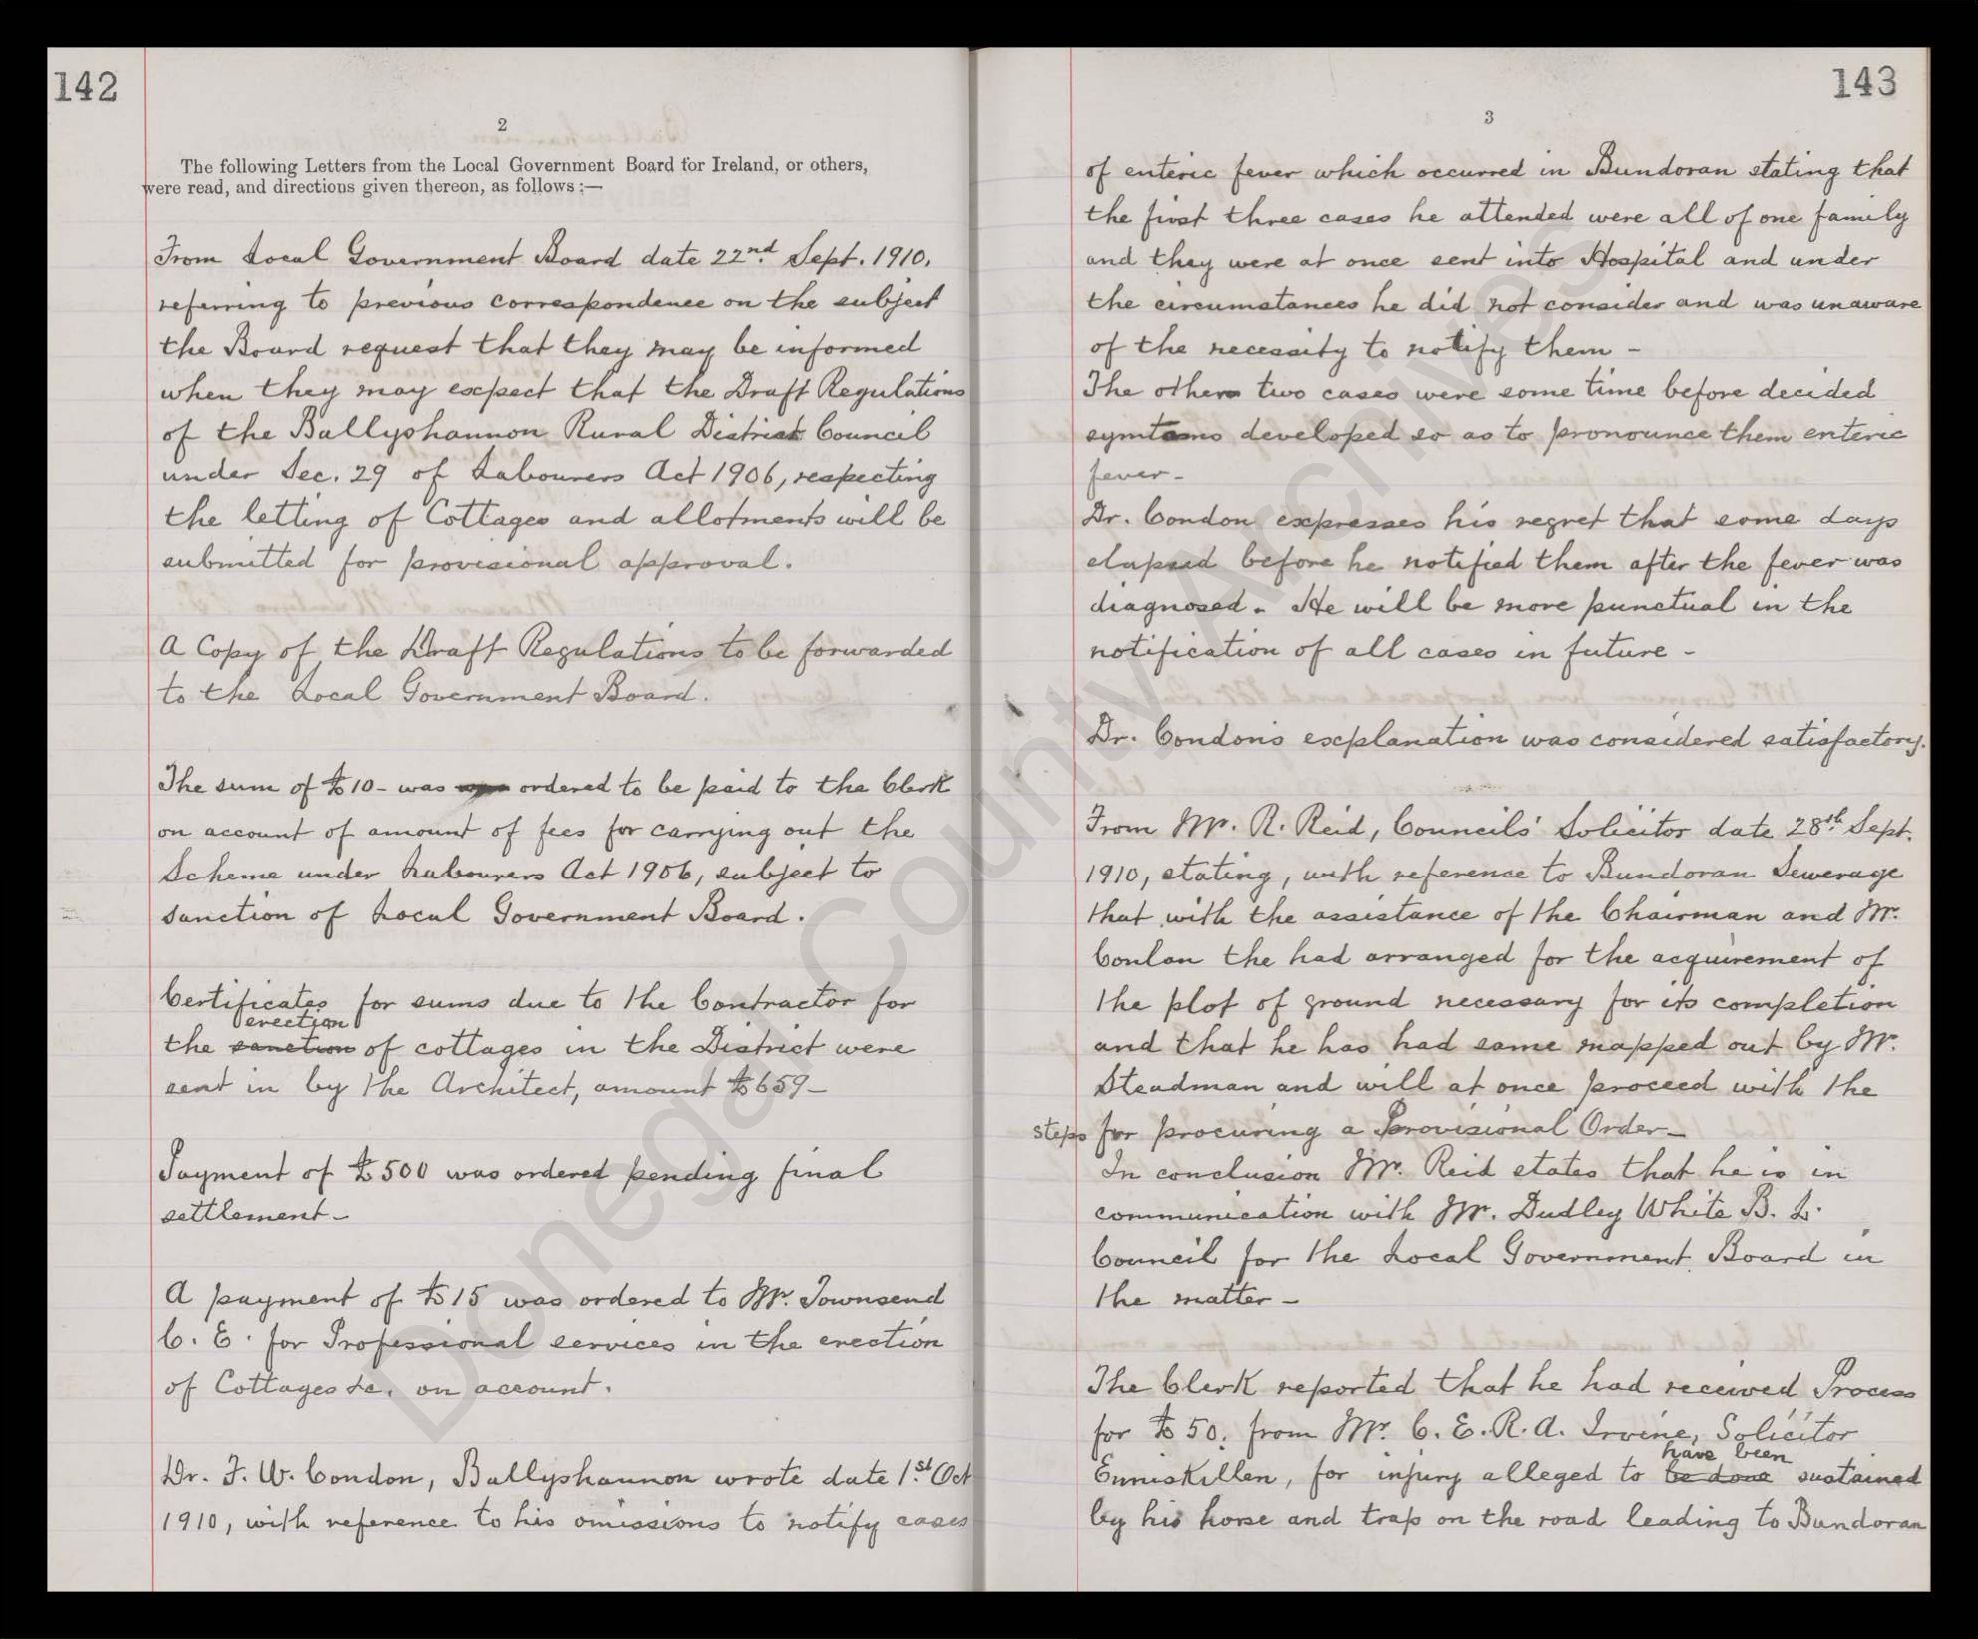 142
2
The following Letters from the Local Government Board for Ireland, or others,
were read, and directions given thereon, as follows :—
From Local Government Board date 22nd. Sept. 1910.
referring to previous correspondence on the subject
the Board request that they may be informed
when they may expect that the Draft Regulations
of the Ballyshannon Rural District Council
under Sec. 29 of Labourers Act 1906, respecting
the letting of Cottages and allotments will be
submitted for provisional approval.
A Copy of the Draft Regulations to be forwarded
to the Local Government Board.
The sum of £10 - was ordered to be paid to the Clerk
on account of amount of fees for carrying out the
Scheme under Labourers Act 1906, subject to
sanction of Local Government Board.
Certificates for sums due to the Contractor for
erection
the sanction of cottages in the District were
sent in by the Architect, amount £659 -
Payment of £500 was ordered pending final
settlement -
A payment of £15 was ordered to Mr. Townsend
C. E. for Professional services in the erection
of Cottages &c. on account.
Dr. F. W. Condon, Ballyshannon wrote date 1st. Oct
1910, with reference to his omissions to notify cases
143
3
of enteric fever which occurred in Bundoran stating that
the first three cases he attended were all of one family
and they were at once sent into Hospital and under
the circumstances he did not consider and was unaware
of the necessity to notify them -
The other two cases were some time before decided
symtoms developed so as to pronounce them enteric
fever -
Dr. Condon expresses his regret that some days
elapsed before he notified them after the fever was
diagnosed - He will be more punctual in the
notification of all cases in future -
Dr. Condon's explanation was considered satisfactory.
From Mr. R. Reid, Councils' Solicitor date 28th Sept.
1910, stating, with reference to Bundoran Sewerage
that with the assistance of the Chairman and Mr.
Conlan the had arranged for the acquirement of
the plot of ground necessary for its completion
and that he has had same mapped out by Mr.
Steadman and will at once proceed with the
steps for procuring a Provisional Order -
In conclusion Mr. Reid states that he is in
communication with Mr. Dudley White B. L.
Council for the Local Government Board in
the matter -
The Clerk reported that he had received Process
for £50. from Mr. C. E. R. A. Irvine, Solicitor
have been
Enniskillen, for injury alleged to be done sustained
by his horse and trap on the road leading to Bundoran
Donegal County Archives